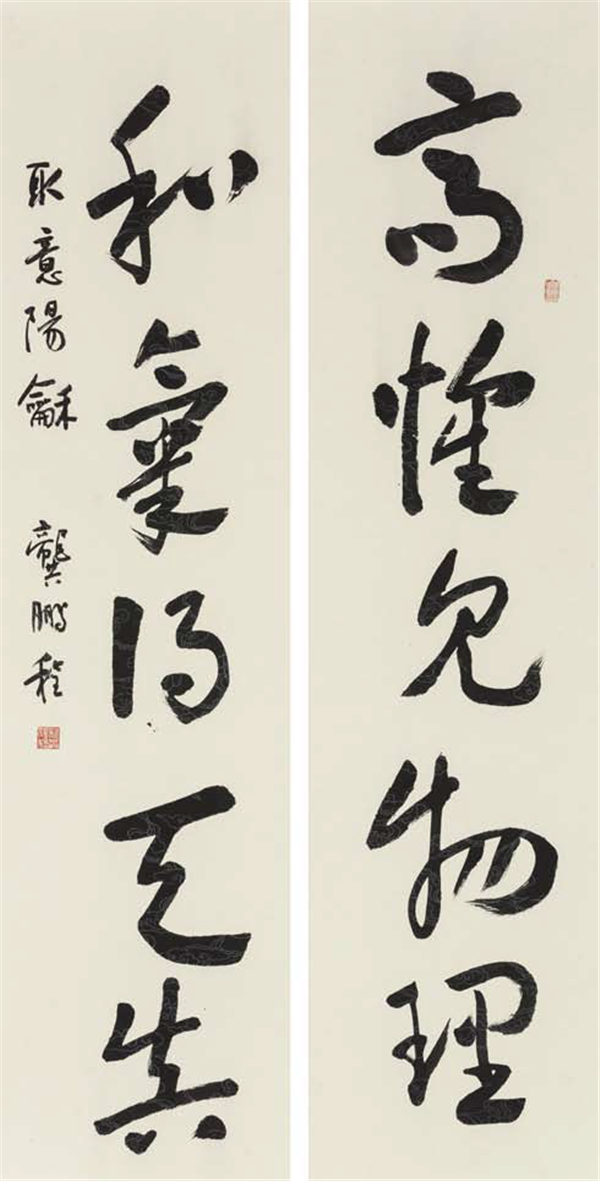 高懷見物理
和氣得天真
取意陽龢 龔鵬程